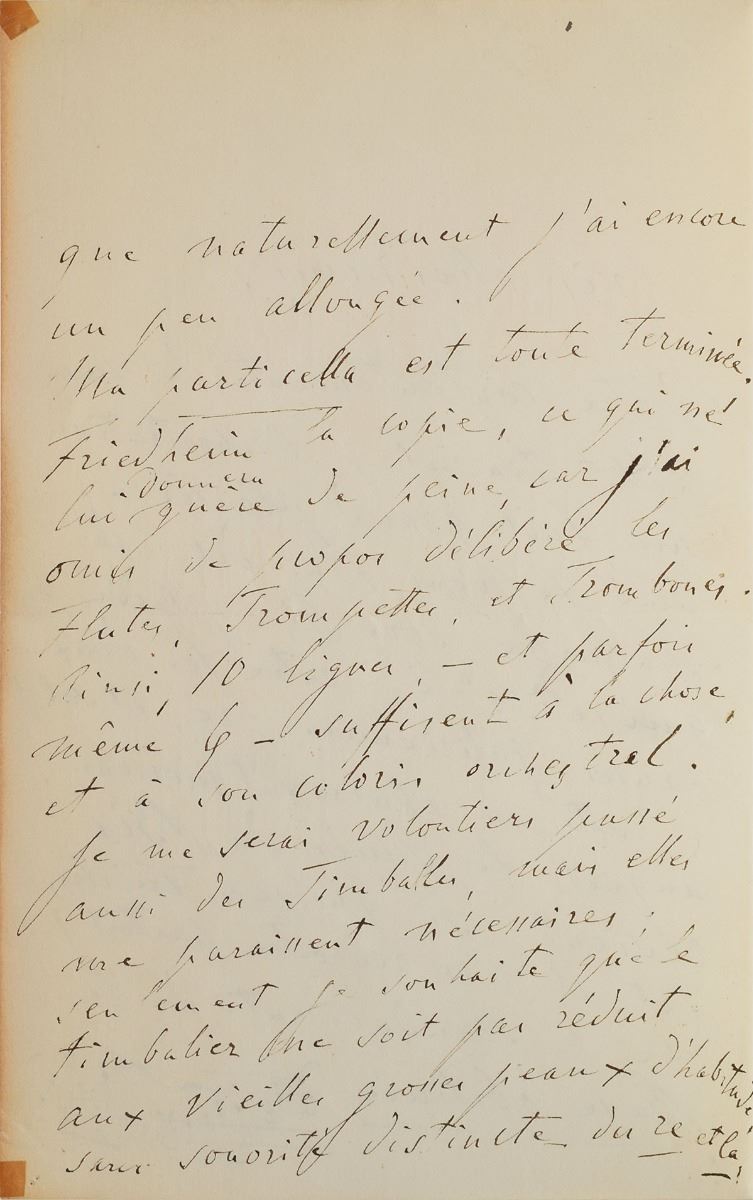 que naturellement j'ai encore
un peu allongée.
Ma particella est toute terminée.
Friedheim la copie, ce qui ne
lui donnera guère de peine, car j'ai
omis de propos délibéré les
Flutes, Trompettes, et Trombones.
Ainsi, 10 lignes, – et parfois
même 6 – suffisent à la chose
et à son coloris orchestral.
Je me serai volontiers passé
aussi des Timballes, mais elles
me paraissent nécessaires;
seulement je souhaite que le
timbalier ne soit pas réduit
aux vieilles grosses peaux d'habitude
sans sonorité distincte du re et la!